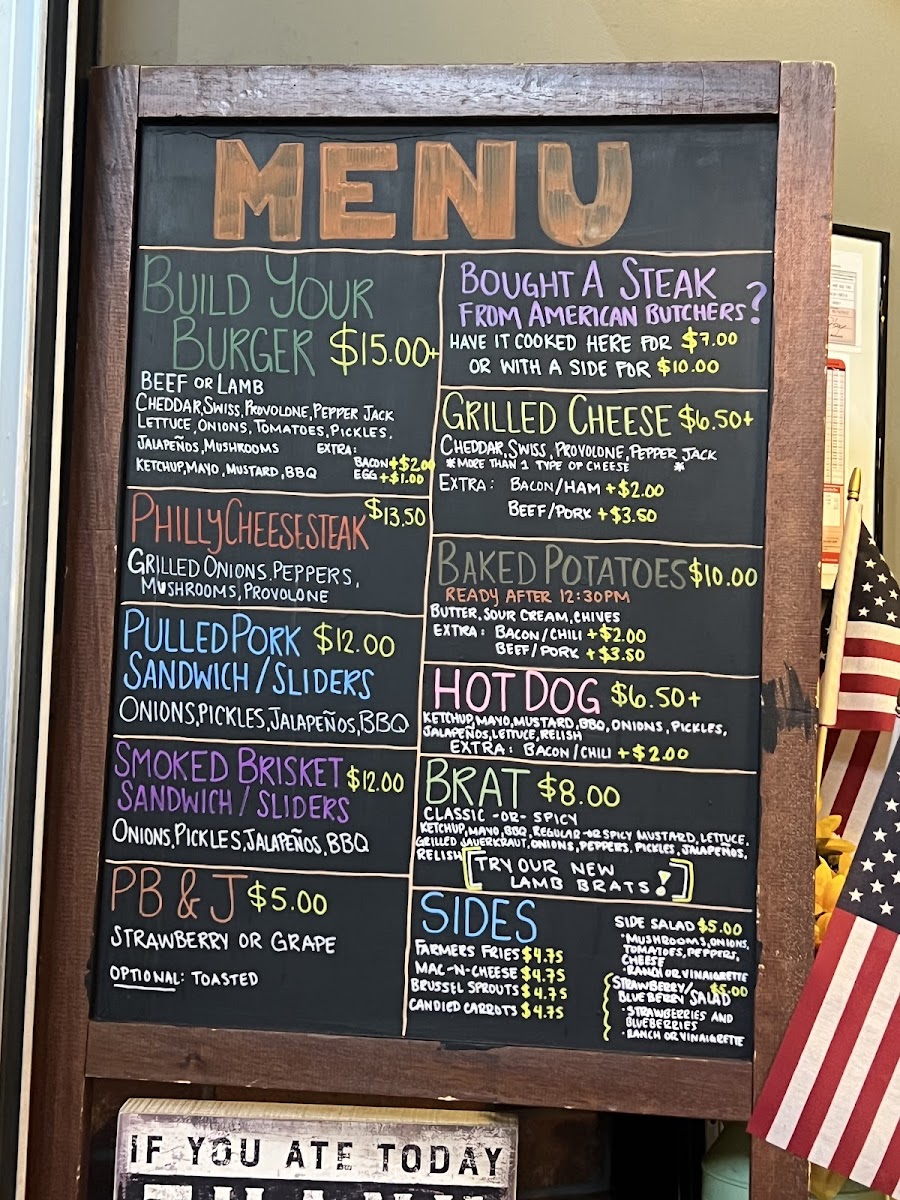 MENU
BUILD YOUR
BURGER $15.00+
BEEF OR LAMB
CHEDDAR, SWISS, PROVOLONE, PEPPER JACK
LETTUCE, ONIONS, TOMATOES, PICKLES,
JALAPEÑOS, MUSHROOMS EXTRA:
BACON +$2.00
KETCHUP, MAYO, MUSTARD, BBQ EGG +$1.00
PHILLY CHEESESTEAK $13.50
GRILLED ONIONS. PEPPERS,
MUSHROOMS, PROVOLONE
PULLED PORK $12.00
SANDWICH / SLIDERS
ONIONS, PICKLES, JALAPEÑOS, BBQ
SMOKED BRISKET $12.00
SANDWICH / SLIDERS
ONIONS, PICKLES, JALAPEÑOS, BBQ
PB & J $5.00
STRAWBERRY OR GRAPE
OPTIONAL: TOASTED
BOUGHT A STEAK
FROM AMERICAN BUTCHERS?
HAVE IT COOKED HERE FOR $7.00
OR WITH A SIDE FOR $10.00
GRILLED CHEESE $6.50+
CHEDDAR, SWISS, PROVOLONE, PEPPER JACK
*MORE THAN 1 TYPE OF CHEESE *
EXTRA: BACON/HAM +$2.00
BEEF/PORK +$3.50
BAKED POTATOES $10.00
READY AFTER 12:30PM
BUTTER, SOUR CREAM, CHIVES
EXTRA: BACON/CHILI +$2.00
BEEF/PORK +$3.50
HOT DOG $6.50+
KETCHUP, MAYO, MUSTARD, BBQ, ONIONS, PICKLES,
JALAPEÑOS, LETTUCE, RELISH
EXTRA: BACON/CHILI +$2.00
BRAT $8.00
CLASSIC -OR- SPICY
KETCHUP, MAYO, BBQ, REGULAR -OR SPICY MUSTARD, LETTUCE,
GRILLED SAUERKRAUT, ONIONS, PEPPERS, PICKLES, JALAPEÑOS,
RELISH [TRY OUR NEW
LAMB BRATS!]
SIDES
FARMERS FRIES $4.75
MAC-N-CHEESE $4.75
BRUSSEL SPROUTS $4.75
CANDIED CARROTS $4.75
SIDE SALAD $5.00
•MUSHROOMS, ONIONS,
TOMATOES, PEPPERS,
CHEESE
•RANCH OR VINAIGRETTE
STRAWBERRY/ $5.00
BLUEBERRY SALAD
•STRAWBERRIES AND
BLUEBERRIES
•RANCH OR VINAIGRETTE
IF YOU ATE TODAY